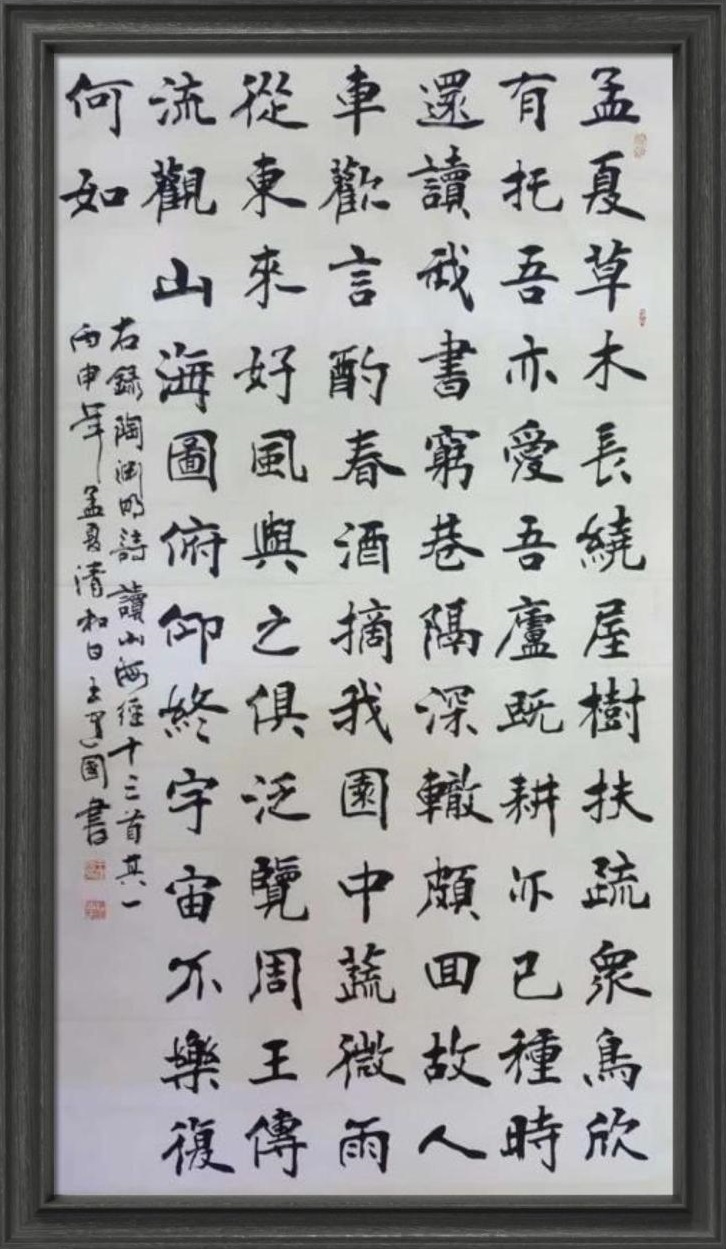 孟夏草木長繞屋樹扶疏衆鳥欣
有托吾亦愛吾廬既耕亦已種時
還讀我書窮巷隔深轍頗回故人
車歡言酌春酒摘我園中蔬微雨
從東來好風與之俱泛覽周王傳
流觀山海圖俯仰終宇宙不樂復
何如
右錄陶渕明詩讀山海經十三首其一
丙申年孟夏清和日王國書